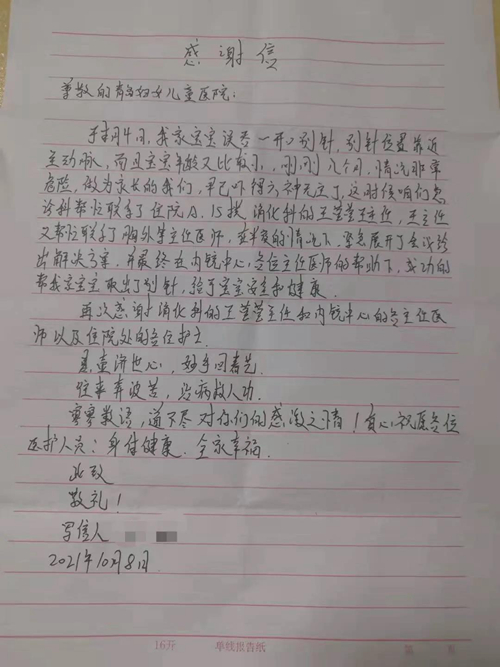 感谢信
尊敬的青岛妇女儿童医院:
于本月4日,我家宝宝误吞一开口别针,别针位置靠近
主动脉,而且宝宝年龄又比较小,刚刚几个月,情况非常
危险,做为家长的我们,早已吓得六神无主了,这时候咱们急
诊科帮忙联系了住院 消化科的王莹莹主任,王主任
又帮忙联系了胸外等主任医师,在 的情况下,紧急展开了会议给
出解决方案,并最终在内镜中心各位主任医师的帮助下,成功的
帮我家宝宝取出了别针,给了宝宝安全和健康.
再次感谢消化科的王莹莹主任和内镜中心的各主任医
师以及住院处的各位护士.
悬壶济世心,妙手回春先.
往来奔波苦,治病救人功.
寥寥数语,道不尽对你们的感激之情!衷心祝愿各位
医护人员:身体健康.全家幸福.
此致
敬礼!
写信人
2021年10月8日.
16开 单线报告纸 第 页